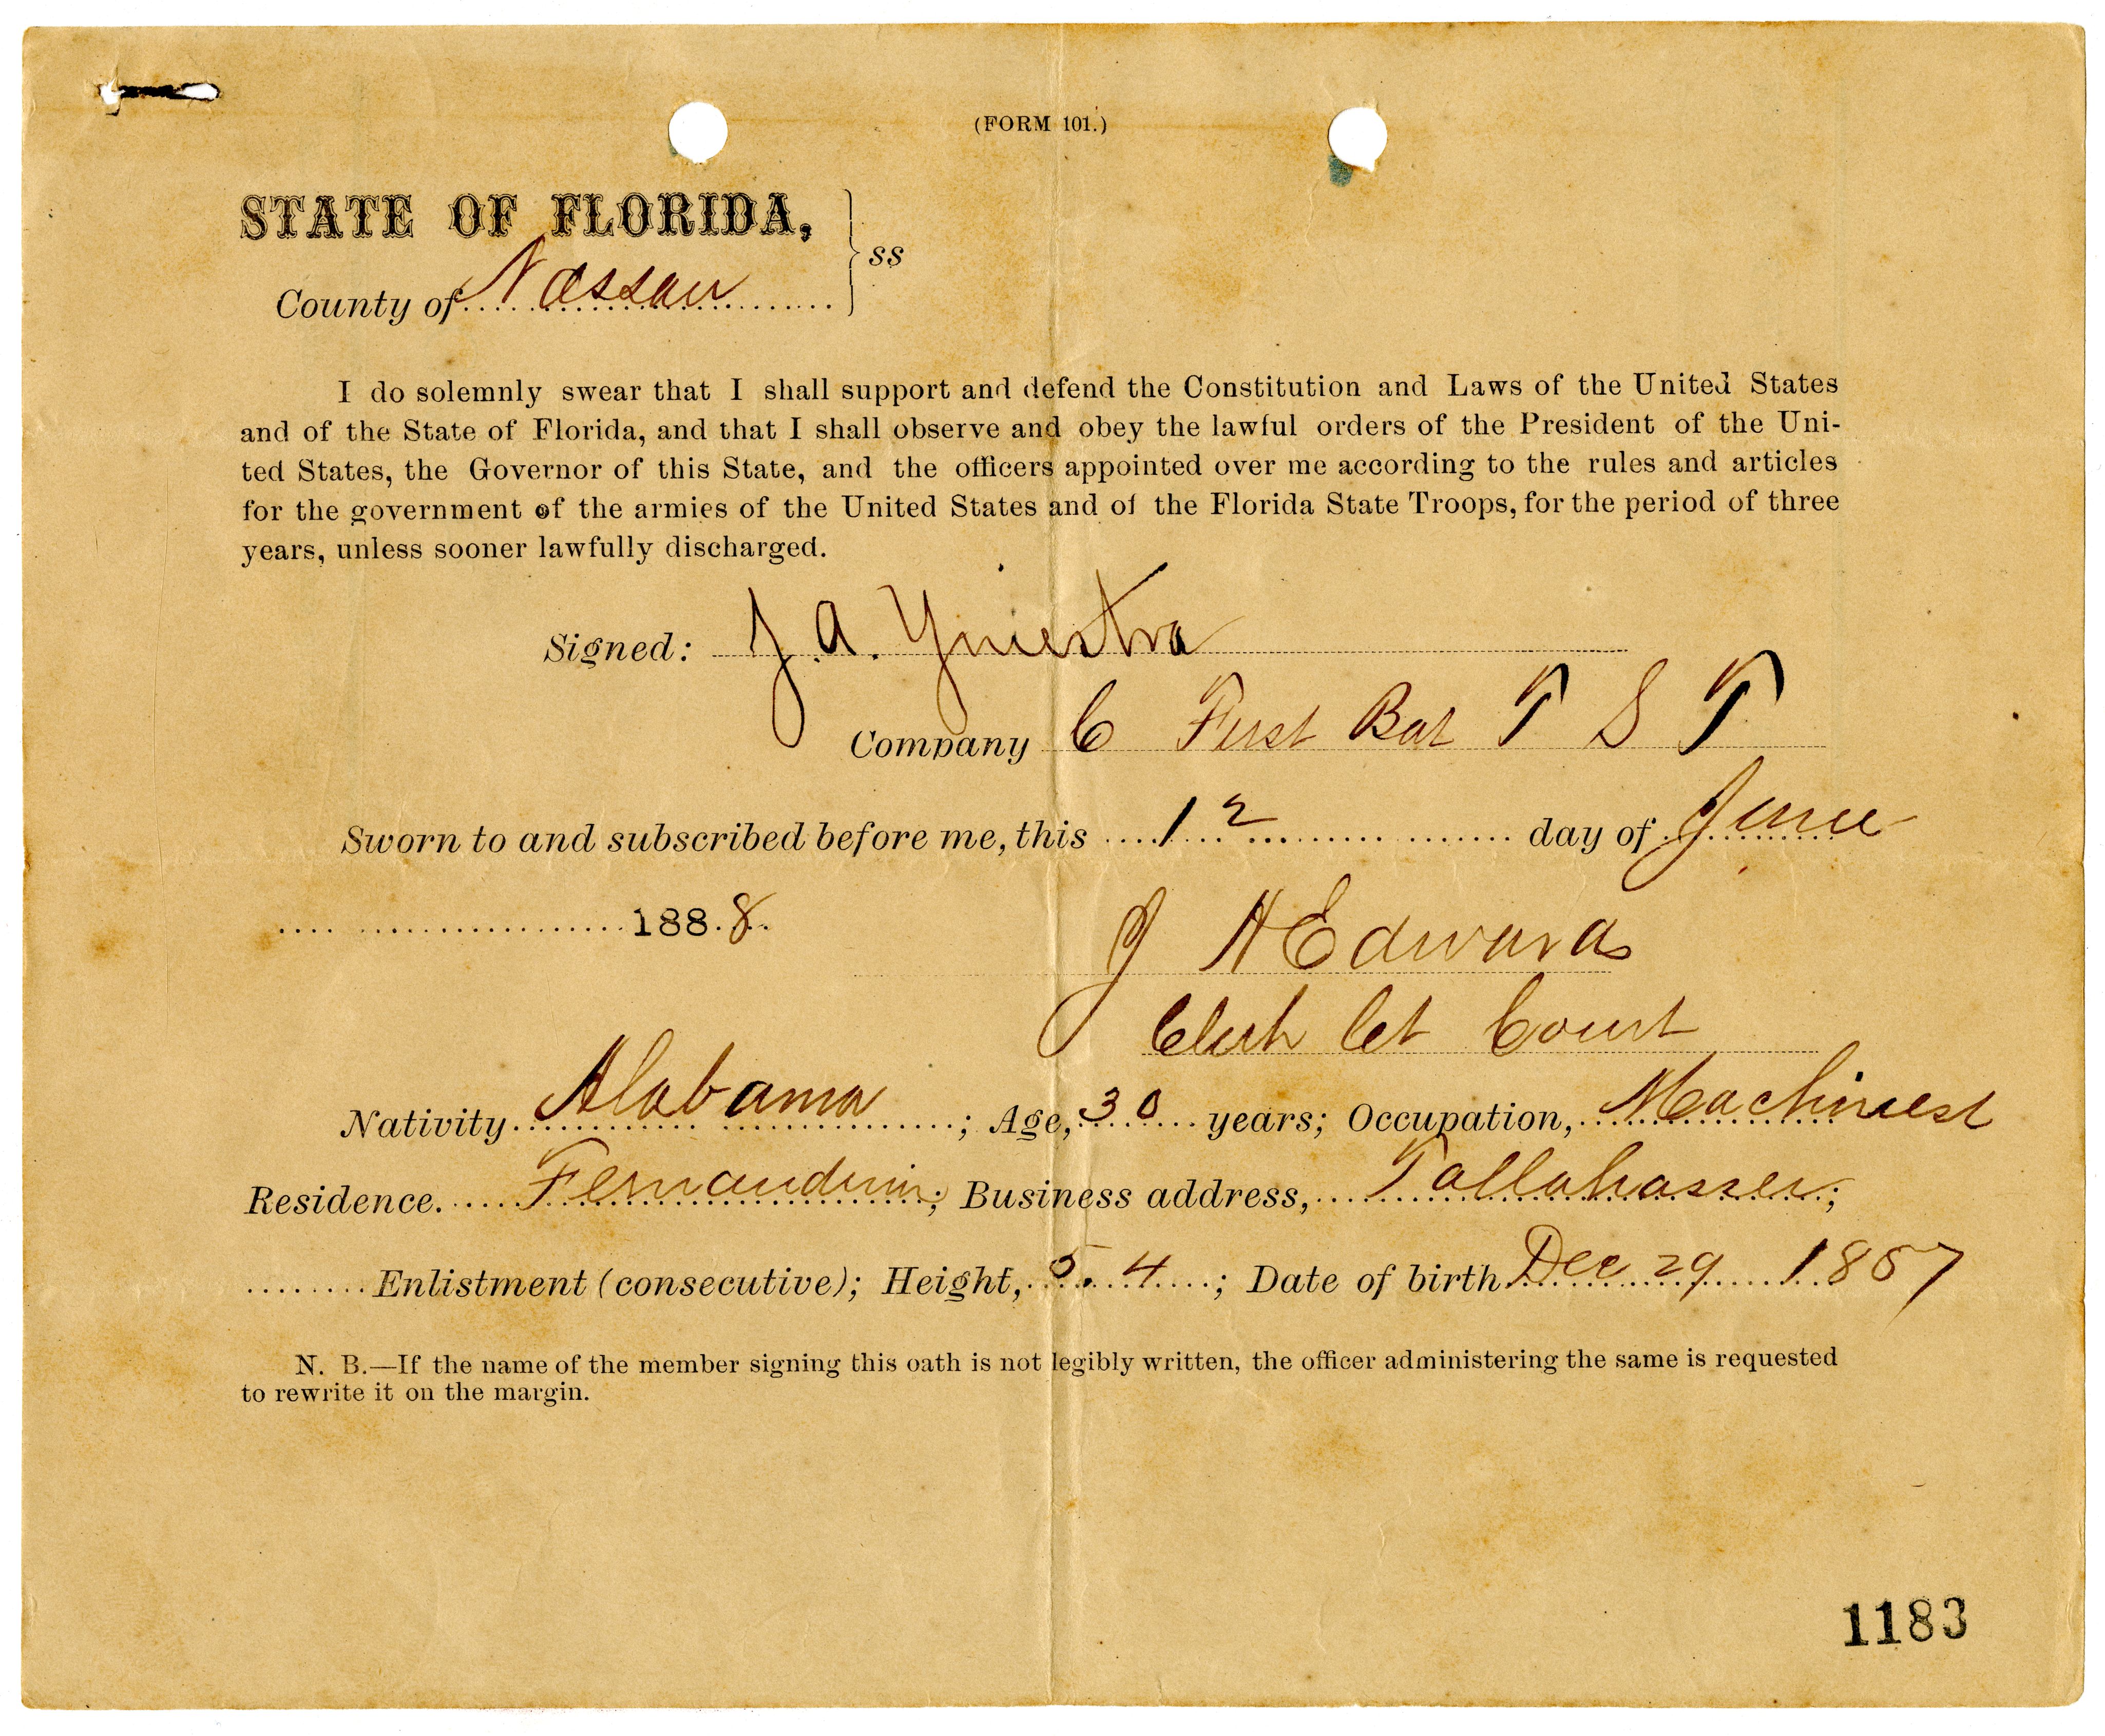 (FORM 101.)
STATE OF FLORIDA,
ss
County of Nassau
I do solemnly swear that I shall support and defend the Constitution and Laws of the United States
and of the State of Florida, and that I shall observe and obey the lawful orders of the President of the Uni-
ted States, the Governor of this State, and the officers appointed over me according to the rules and articles
for the government of the armies of the United States and of the Florida State Troops, for the period of three
years, unless sooner lawfully discharged.
Signed: J. A. Yniestra
Company C First Bat F S T
Sworn to and subscribed before me, this 12 day of June
1888.
J H Edwards
Clerk Ct Court
Nativity Alabama; Age, 30 years; Occupation, Machinest
Residence. Fernandina; Business address, Tallahassee;
Enlistment (consecutive); Height, 5.4; Date of birth Dec 29 1857
N. B.—If the name of the member signing this oath is not legibly written, the officer administering the same is requested
to rewrite it on the margin.
1183